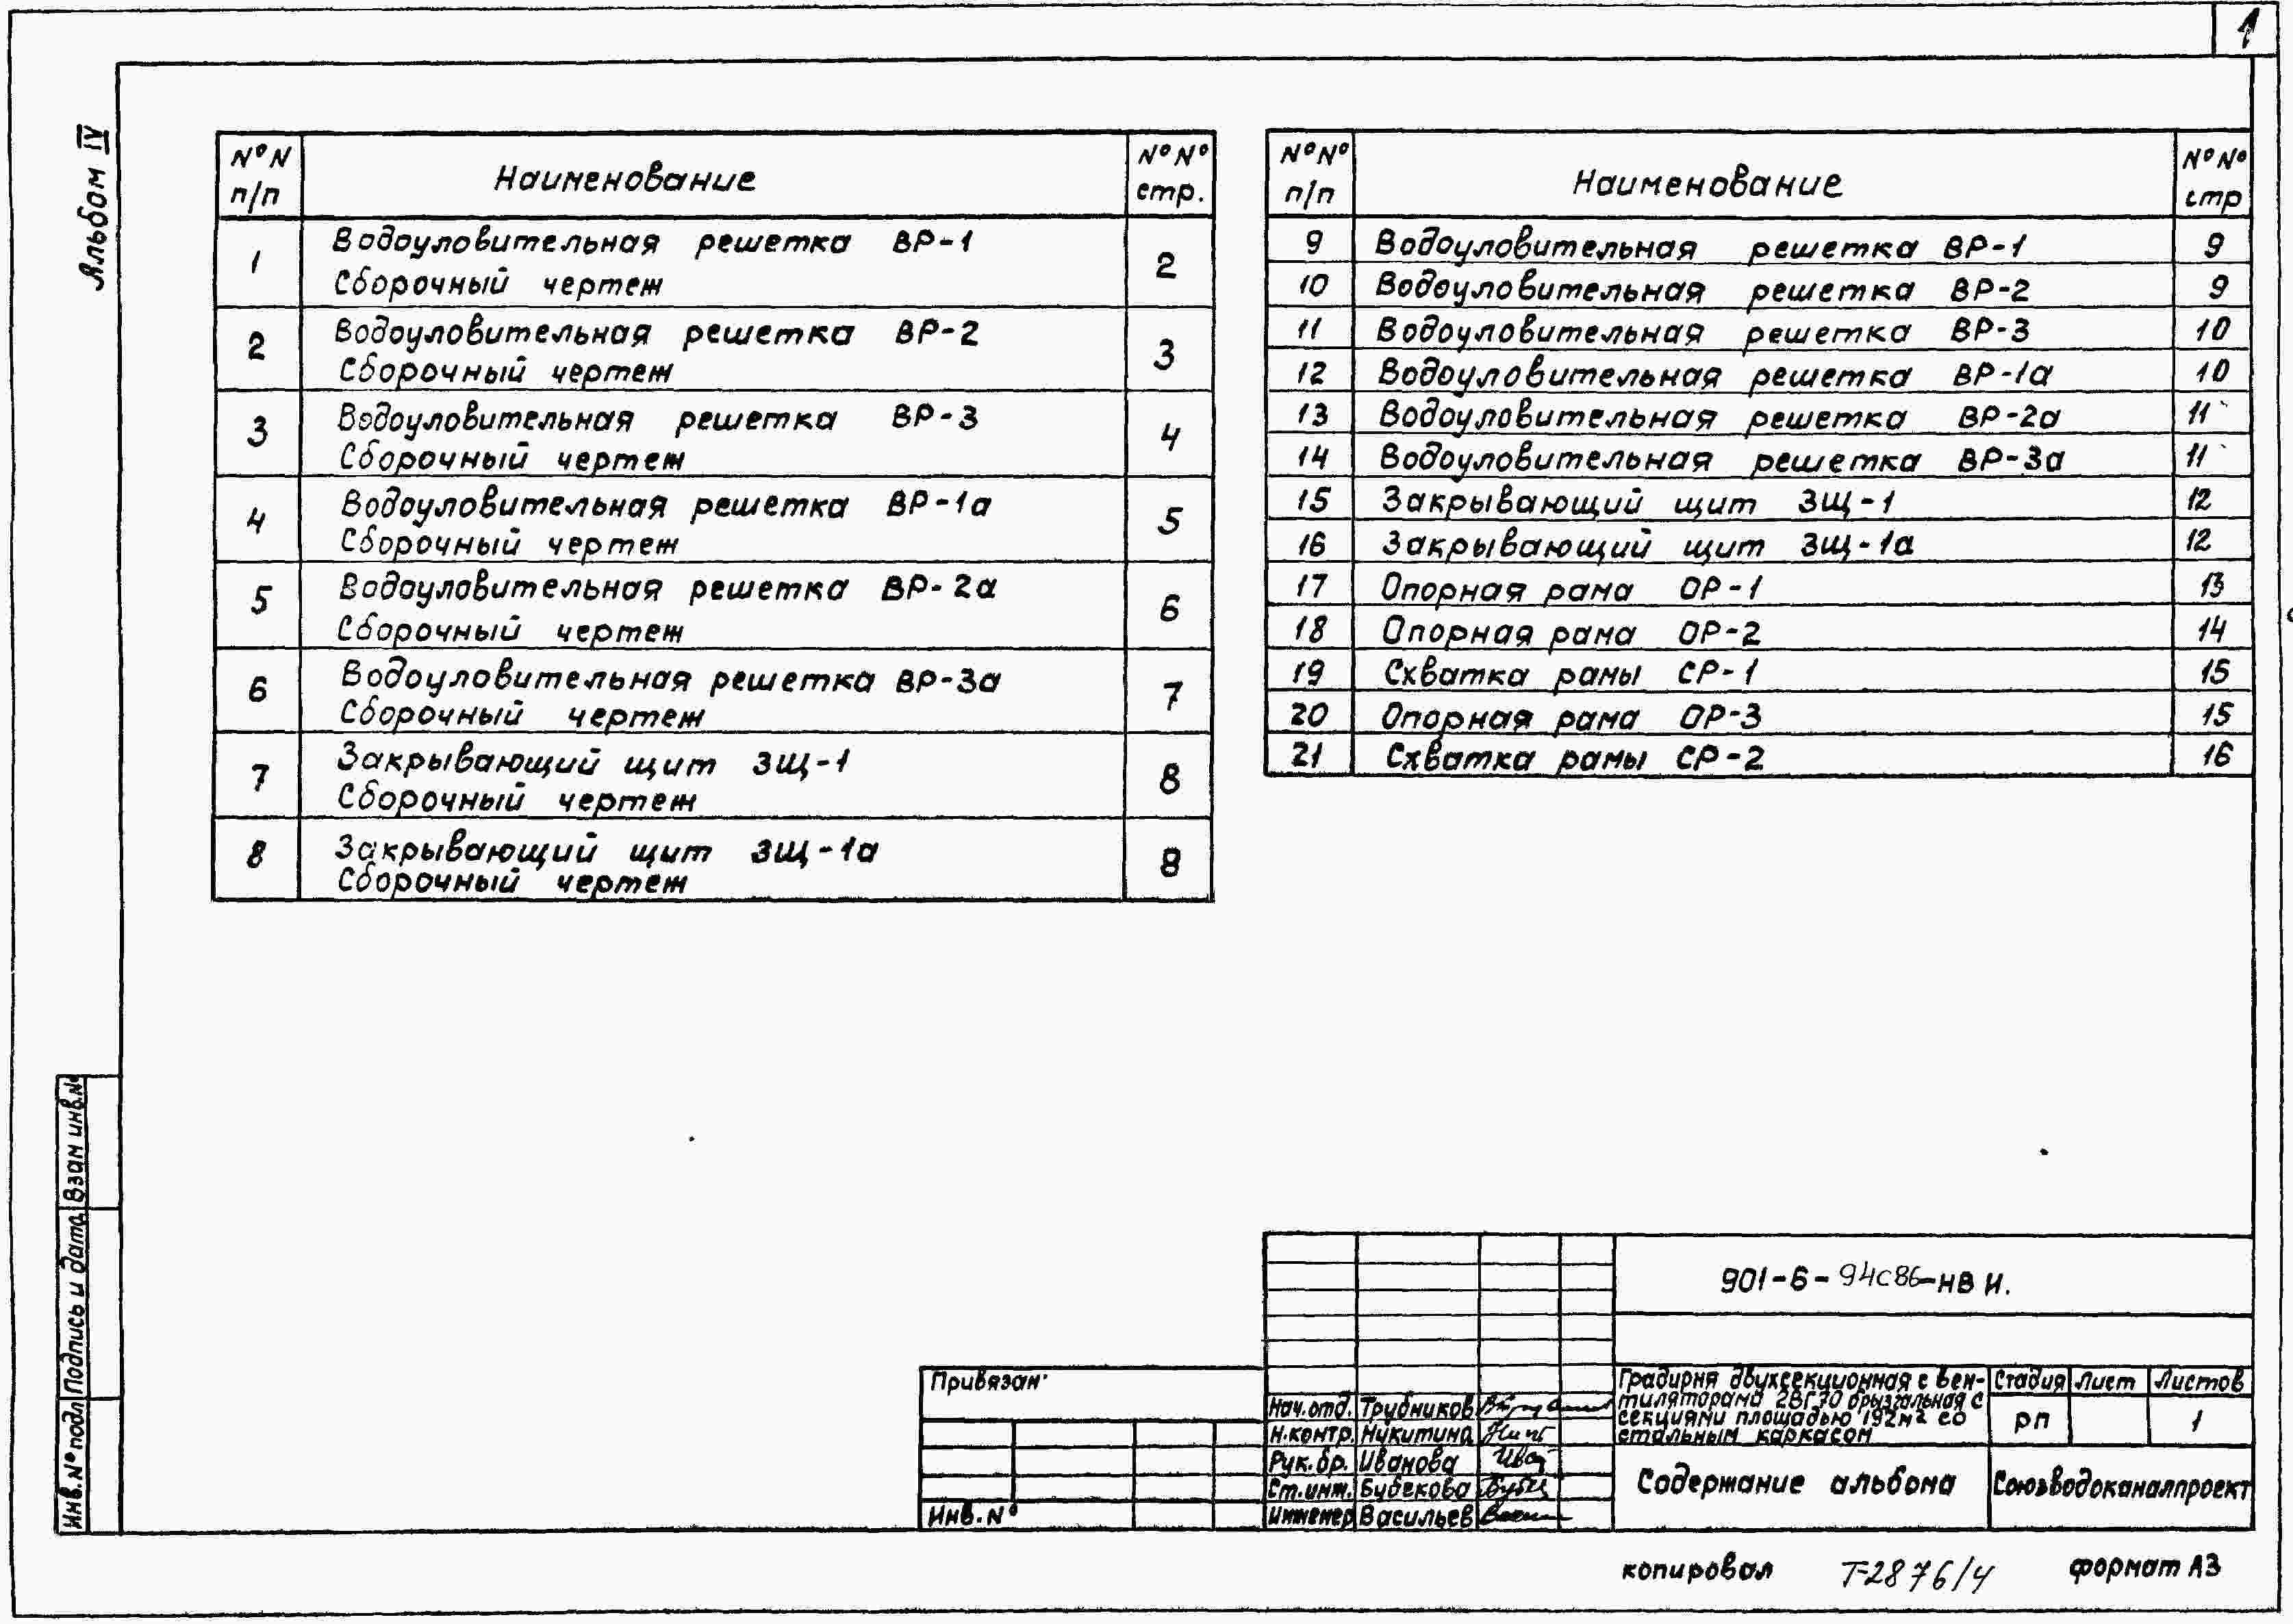 1
Альбом IV
№ N п/п Наименование №№ стр.
1 Водоуловительная решетка ВР-1 2
Сборочный чертеж
2 Водоуловительная решетка ВР-2 3
Сборочный чертеж
3 Водоуловительная решетка ВР-3 4
Сборочный чертеж
4 Водоуловительная решетка ВР-1а 5
Сборочный чертеж
5 Водоуловительная решетка ВР-2а 6
Сборочный чертеж
6 Водоуловительная решетка ВР-3а 7
Сборочный чертеж
7 Закрывающий щит ЗЩ-1 8
Сборочный чертеж
8 Закрывающий щит ЗЩ-1а 8
Сборочный чертеж
№№ п/п Наименование №№ стр
9 Водоуловительная решетка ВР-1 9
10 Водоуловительная решетка ВР-2 9
11 Водоуловительная решетка ВР-3 10
12 Водоуловительная решетка ВР-1а 10
13 Водоуловительная решетка ВР-2а 11
14 Водоуловительная решетка ВР-3а 11
15 Закрывающий щит ЗЩ-1 12
16 Закрывающий щит ЗЩ-1а 12
17 Опорная рама ОР-1 13
18 Опорная рама ОР-2 14
19 Схватка рамы СР-1 15
20 Опорная рама ОР-3 15
21 Схватка рамы СР-2 16
Взам инв.№
Подпись и дата
Инв.№ подл
Привязан
Инв. №
901-6-94с86-НВ И.
Нач.отд. Трубников
Н.контр. Никитина
Рук.бр. Иванова
Ст.инж. Бубекова
Инженер Васильев
Градирня двухсекционная с вен-
тиляторами 2ВГ70 брызгальная с
секциями площадью 192м2 со
стальным каркасом
Стадия Лист Листов
рп 1
Содержание альбома
Союзводоканалпроект
копировал Т-2876/4 формат А3